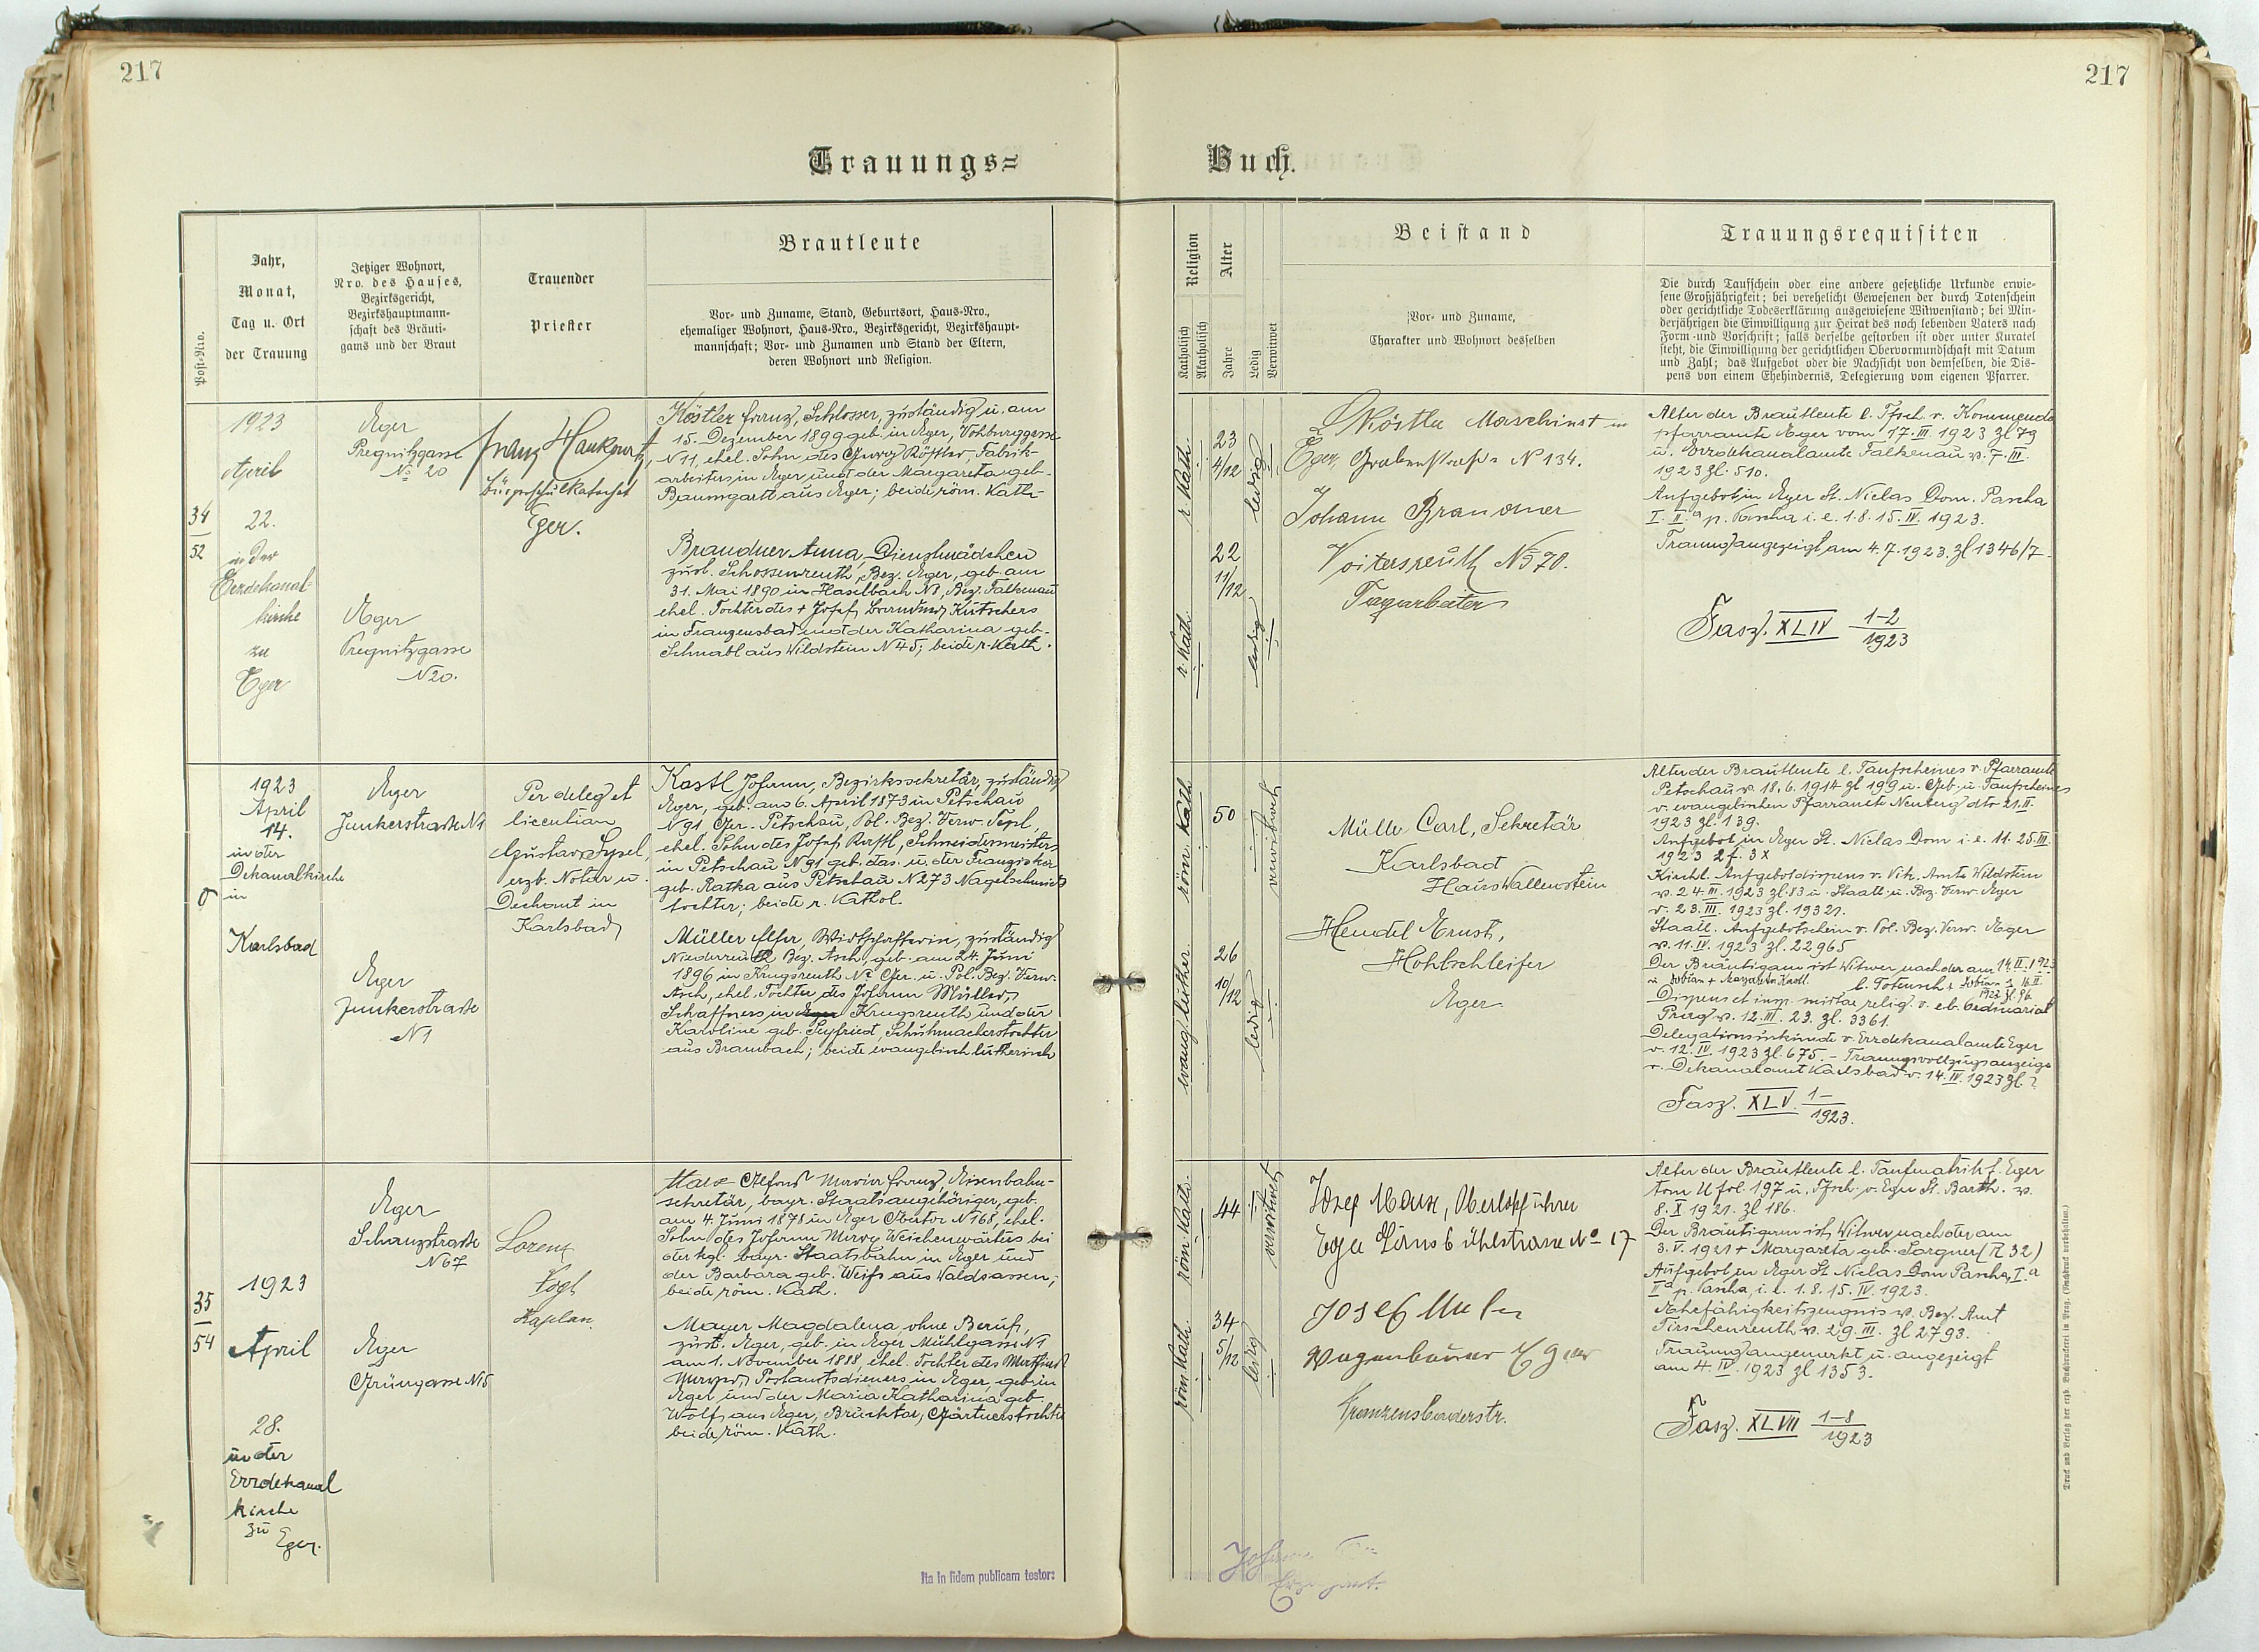 217
217
Trauungs=
Buch.
Post-Nro.
Jahr,
Monat,
Tag u. Ort
der Trauung
Jetziger Wohnort,
Nro. des Hauses,
Bezirksgericht,
Bezirkshauptmann-
schaft des Bräuti-
gams und der Braut
Trauender
Priester
Brautleute
Vor- und Zuname, Stand, Geburtsort, Haus-Nro.,
ehemaliger Wohnort, Haus-Nro., Bezirksgericht, Bezirkshaupt-
mannschaft; Vor- und Zunamen und Stand der Eltern,
deren Wohnort und Religion.
Religion
Katholisch
Akatholisch
Alter
Jahre
Ledig
Verwitwet
Beistand
Vor- und Zuname,
Charakter und Wohnort desselben
Trauungsrequisiten
Die durch Taufschein oder eine andere gesetzliche Urkunde erwie-
sene Großjährigkeit; bei verehelicht Gewesenen der durch Totenschein
oder gerichtliche Todeserklärung ausgewiesene Witwenstand; bei Min-
derjährigen die Einwilligung zur Heirat des noch lebenden Vaters nach
Form und Vorschrift; falls derselbe gestorben ist oder unter Kuratel
steht, die Einwilligung der gerichtlichen Obervormundschaft mit Datum
und Zahl; das Aufgebot oder die Nachsicht von demselben, die Dis-
pens von einem Ehehindernis, Delegierung vom eigenen Pfarrer.
34
52
1923
April
22.
in der
Erzdekanal-
kirche
zu
Eger
Eger
Pregnitzgasse
No 20
Eger
Pregnitzgasse
N 20.
Franz
Bürgerschulkatechet
Eger.
Köstler Franz, Schlosser, zuständig u. am
15. Dezember 1899 geb. in Eger, Vohburggasse
N 11, ehel. Sohn des Georg Köstler, Fabrik-
arbeiters in Eger und der Margareta geb.
Baumgartl aus Eger; beide röm. Kath.
Brandner Anna, Dienstmädchen
zust. Schossenreuth, Bez. Eger, geb. am
31. Mai 1890 in Haselbach N 8, Bez. Falkenau
ehel. Tochter des + Josef Brandner, Kutschers
in Franzensbad und der Katharina geb.
Schnabl aus Wildstein N 45; beide r. Kath.
r. Kath.
23
4/12
ledig
r. Kath.
22
11/12
ledig
Köstler Maschinist in
Eger, Grabenstraße N 134.
Johann Brandner
Voitersreuth No 70.
Tagarbeiter
Alter der Brautleute l. Tfsch. v. Kommende
pfarramte Eger vom 17. III 1923 Zl 79
u. Erzdekanalamte Falkenau v. 7. III.
1923 Zl. 510.
Aufgebot in Eger St. Niclas Dom. Pascha
I. II. a p. Pascha i. e. 1. 8. 15. IV. 1923.
Trauung angezeigt am 4. 7. 1923. Zl 1346/7.
Fasz. XLIV 1-2
1923
1923
April
14.
in der
Dekanalkirche
in
Karlsbad
Eger
Junkerstraße N 1
Eger
Junkerstrasse
N 1
Per deleg et
licentiam
Gustav Sysel,
erzb. Notar u.
Dechant in
Karlsbad
Kastl Johann, Bezirkssekretär, zuständig
Eger, geb. am 6. April 1873 in Petschau
N 91 Ger. Petschau, Pol. Bez. Verw. Tepl,
ehel. Sohn des Josef Kastl, Schneidermeisters
in Petschau N 91 geb. das. u. der Franziska
geb. Ratka aus Petschau N 273 Nagelschmieds
tochter; beide r. Kathol.
Müller Elsa, Wirtschafterin, zuständig
Niederreuth Bez. Asch, geb. am 24. Juni
1896 in Krugsreuth No Ger. u. Pol. Bez. Verw.
Asch, ehel. Tochter des Johann Müller,
Schaffners in Krugsreuth und der
Karoline geb. Seyfried, Schuhmacherstochter
aus Brambach; beide evangelisch lutherisch
röm. Kath.
50
verwitwet
evang. luther.
26
10/12
ledig
Müller Carl, Sekretär
Karlsbad
Haus Wallenstein
Hendel Ernst,
Hohlschleifer
Eger
Alter der Brautleute l. Taufscheines v. Pfarramte
Petschau v. 18. 6. 1914 Zl 199 u. Geb. u. Taufscheines
v. evangelischen Pfarramte Neuberg dto 21. II.
1923 Zl. 139.
Aufgebot in Eger St. Niclas Dom i. e. 11. 25. III.
1923 2 f. 3 x
Kirchl. Aufgebotdispens v. Vik. Amte Wildstein
v. 24. III. 1923 Zl. 83 u. Staatl. u. Bez. Verw. Eger
v. 23. III. 1923 Zl. 19321.
Staatl. Aufgebotschein v. Pol. Bez. Verw. Eger
v. 11. IV. 1923 Zl. 22965
Der Bräutigam ist Witwer nach der am 14. II. 1923
Dispens et imp. mixtae relig. v. eb. Ordinariat
Prag v. 12. III. 23. Zl. 3361.
Delegationsurkunde v. Erzdekanalamte Eger
v. 12. IV. 1923 Zl. 675. - Trauungsvollzugsanzeige
v. Dekanalamt Karlsbad v. 14. IV. 1923 Zl. ?
Fasz. XLV. 1-
1923.
35
54
1923
April
28.
in der
Erzdekanal
kirche
zu
Eger.
Eger
Schanzstraße
N 67
Eger
Grüngasse N 5
Lorenz
Vogl
Kaplan.
Franz, Eisenbahn-
sekretär, bayr. Staatsangehöriger, geb.
am 4. Juni 1878 in Eger Obertor N 168, ehel.
Sohn des Johann Weichenwärters bei
der kgl. bayr. Staatsbahn in Eger und
der Barbara geb. Weiß aus Waldsassen;
beide röm. Kath.
Mayer Magdalena, ohne Beruf,
zust. Eger, geb. in Eger Mühlgasse N 1
am 1. November 1888, ehel. Tochter des
Mayer, Postamtsdieners in Eger, geb. in
Eger und der Maria Katharina geb.
Wolf aus Eger, Brucktor, Gärtnerstochter
beide röm. Kath.
röm. Kath.
44
verwitwet
röm. Kath.
34
5/12
ledig
Josef
Josef
Wagenbauer Eger
Franzensbaderstr.
Alter der Brautleute l. Taufmatrik f. Eger
tom U fol. 197 u. Tfsch. v. Eger St. Barth. v.
8. X 1921. Zl 186.
Der Bräutigam ist Witwer nach der am
3. V. 1921 + Margareta geb. Sorgner
Aufgebot in Eger St Niclas Dom Pascha, I. a
II a p. Pascha, i. e. 1. 8. 15. IV. 1923.
Ehefähigkeitszeugnis v. Bez. Amt
Tirschenreuth v. 29. III. Zl 2793.
Trauung angemerkt u. angezeigt
am 4. IV. 1923 Zl 1353.
Fasz. XLVII 1-8
1923
Ita in fidem publicam testor:
Druck und Verlag der erzb. Buchdruckerei in Prag. (Nachdruck verbehalten.)